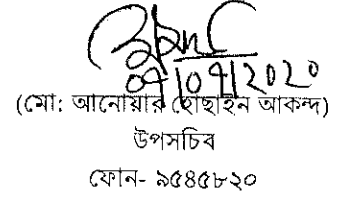 ০৭/০৭/2020
(মো: আনোয়ার হোছাইন আকন্দ)
উপসচিব
ফোন- ৯৫৪৫৮২০